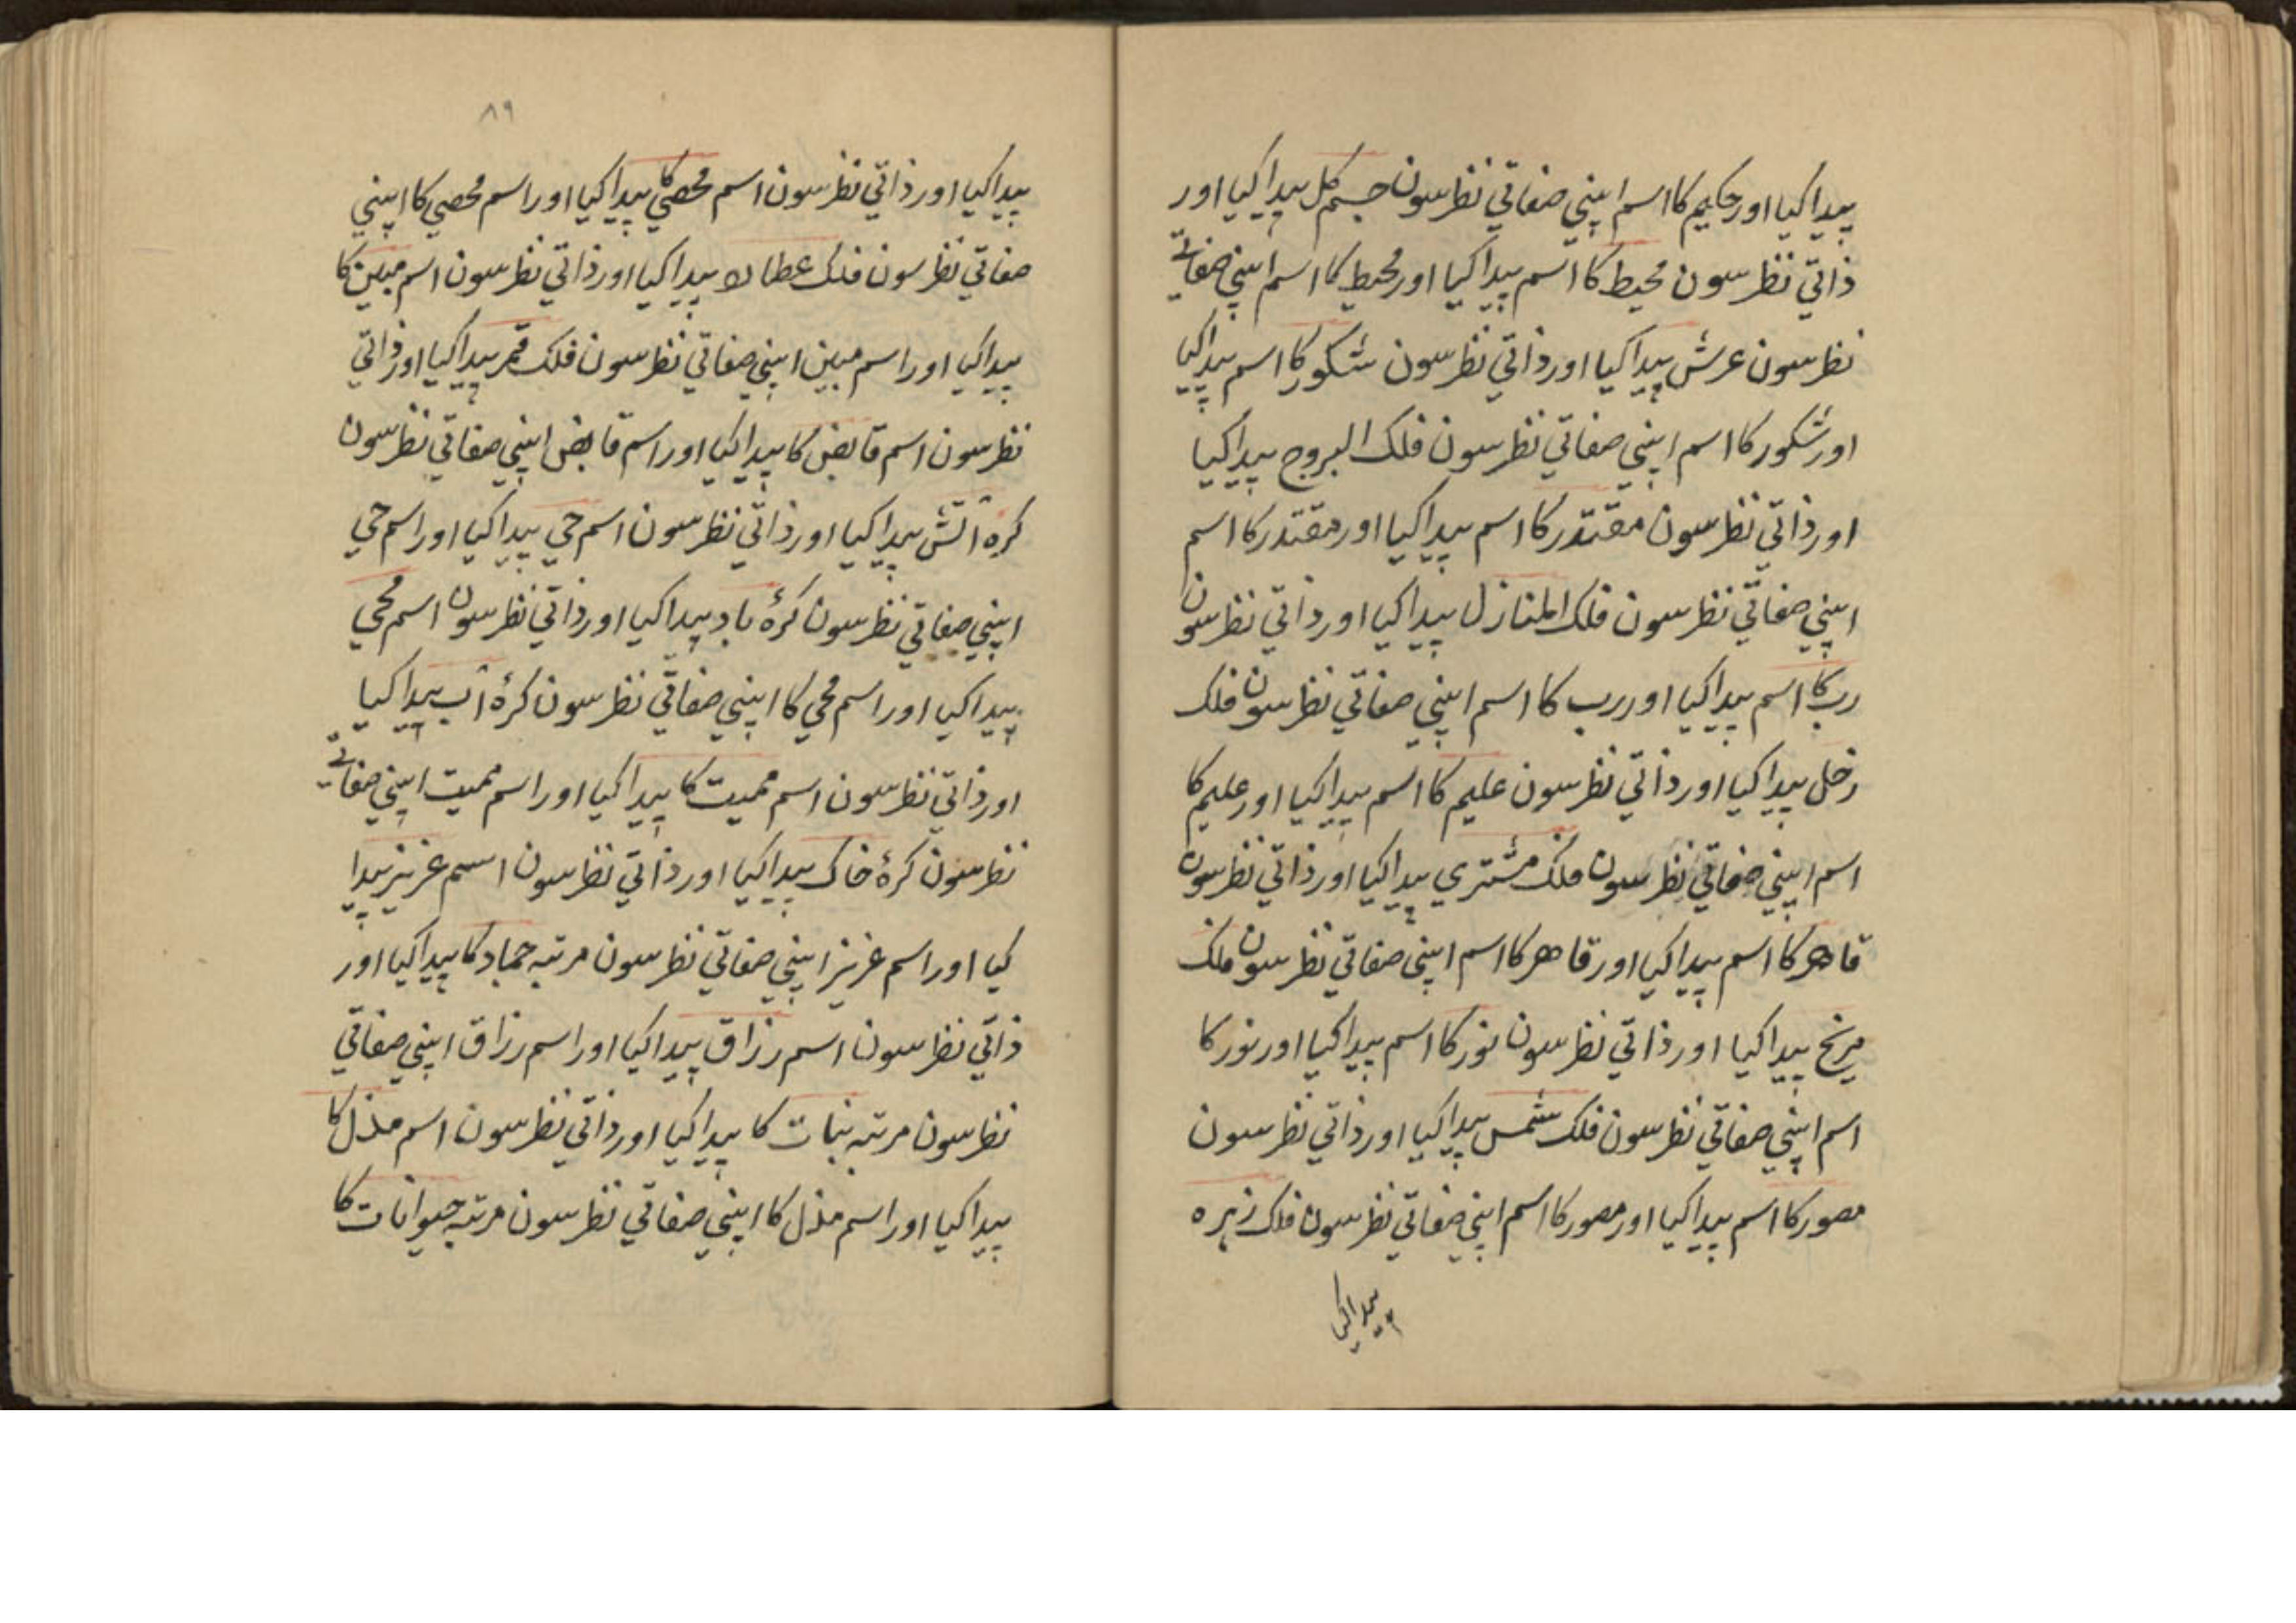 پیدا کیا اور حکیم کا اسم اپنی صفاتی نظر سون جسم کل پیدا کیا اور
ذاتی نظر سون محیط کا اسم پیدا کیا اور محیط کا اسم اپنی صفاتی
نظر سون عرش پیدا کیا اور ذاتی نظر سون شکور کا اسم پیدا کیا
اور شکور کا اسم اپنی صفاتی نظر سون فلک البروج پیدا کیا
اور ذاتی نظر سون مقتدر کا اسم پیدا کیا اور مقتدر کا اسم
اپنی صفاتی نظر سون فلک المنازل پیدا کیا اور ذاتی نظر سون
رب کا اسم پیدا کیا اور رب کا اسم اپنی صفاتی نظر سون فلک
زحل پیدا کیا اور ذاتی نظر سون علیم کا اسم پیدا کیا اور علیم کا
اسم اپنی صفاتی نظر سون فلک مشتری پیدا کیا اور ذاتی نظر سون
قاهر کا اسم پیدا کیا اور قاهر کا اسم اپنی صفاتی نظر سون فلک
مریخ پیدا کیا اور ذاتی نظر سون نور کا اسم پیدا کیا اور نور کا
اسم اپنی صفاتی نظر سون فلک شمس پیدا کیا اور ذاتی نظر سون
مصور کا اسم پیدا کیا اور مصور کا اسم اپنی صفاتی نظر سون فلک زہرہ
پیدا کیا
۸۹
پیدا کیا اور ذاتی نظر سون اسم محصی کا پیدا کیا اور اسم محصی کا اپنی
صفاتی نظر سون فلک عطارد پیدا کیا اور ذاتی نظر سون اسم مبین کا
پیدا کیا اور اسم مبین اپنی صفاتی نظر سون فلک قمر پیدا کیا اور ذاتی
نظر سون اسم قابض کا پیدا کیا اور اسم قابض اپنی صفاتی نظر سون
کرہ آتش پیدا کیا اور ذاتی نظر سون اسم حی پیدا کیا اور اسم حی
اپنی صفاتی نظر سون کرۂ باد پیدا کیا اور ذاتی نظر سون اسم محی
پیدا کیا اور اسم محی کا اپنی صفاتی نظر سون کرۂ آب پیدا کیا
اور ذاتی نظر سون اسم ممیت کا پیدا کیا اور اسم ممیت اپنی صفاتی
نظر سون کرۂ خاک پیدا کیا اور ذاتی نظر سون اسم عزیز پیدا
کیا اور اسم عزیز اپنی صفاتی نظر سون مرتبہ جماد کا پیدا کیا اور
ذاتی نظر سون اسم رزاق پیدا کیا اور اسم رزاق اپنی صفاتی
نظر سون مرتبہ نبات کا پیدا کیا اور ذاتی نظر سون اسم مذل کا
پیدا کیا اور اسم مذل کا اپنی صفاتی نظر سون مرتبہ حیوانات کا